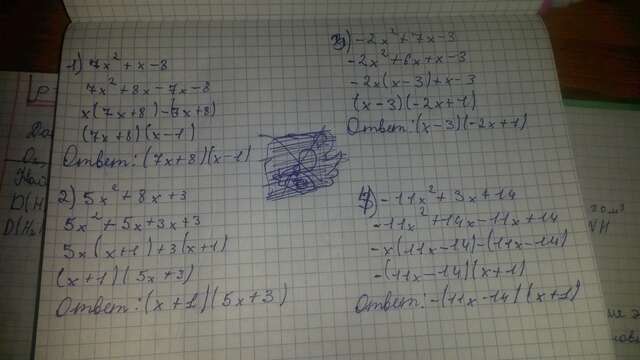 1) 7x² + x - 8
7x² + 8x - 7x - 8
x(7x+8) - (7x+8)
(7x+8)(x-1)
Ответ: (7x+8)(x-1)
2) 5x² + 8x + 3
5x² + 5x + 3x + 3
5x(x+1) + 3(x+1)
(x+1)(5x+3)
Ответ: (x+1)(5x+3)
3) -2x² + 7x - 3
-2x² + 6x + x - 3
-2x(x-3) + x - 3
(x-3)(-2x+1)
Ответ: (x-3)(-2x+1)
4) -11x² + 3x + 14
-11x² + 14x - 11x + 14
-x(11x-14) - (11x-14)
-(11x-14)(x+1)
Ответ: -(11x-14)(x+1)